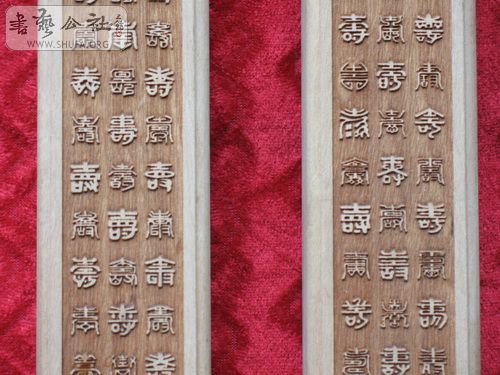 書藝公社
WWW.SHUFA.ORG
壽壽壽壽壽壽壽壽
壽壽壽壽壽壽壽壽
壽壽壽壽壽壽壽壽
壽壽壽壽壽壽壽壽
壽壽壽壽壽壽壽壽
壽壽壽壽壽壽壽壽